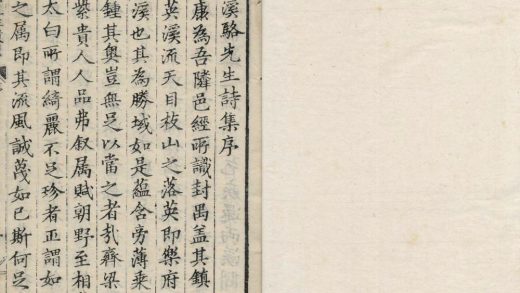 溪駱先生詩集序
康為吾隣邑經所識封禺盖其鎮
英溪流天目枝山之落英即樂府
溪也其為勝域如是蘊含旁薄乗
鍾其奥豈無足以當之者哉齊梁
紫貴人人品弗叙属賦朝野至相
太白所謂綺麗不足珍者正謂如
之属即其流風誠蔑如已斯何足